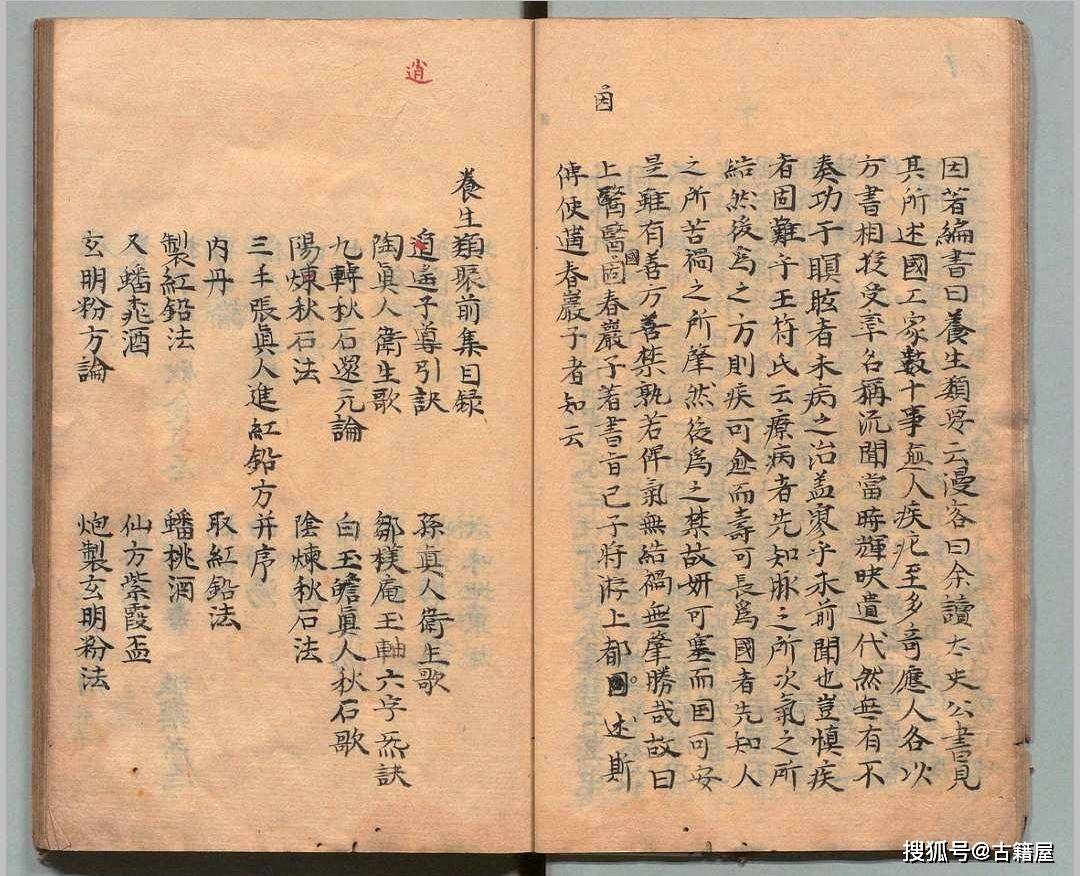 因
因著編書曰養生類要云漫客曰余讀太史公書見
其所述國工家數十事兪人疾疕至多奇應人各以
方書相授受率名稱流聞當時輝映遺代然無有不
奏功于瞑眩者未病之治盖寥乎未前聞也豈慎疾
者固難乎王符氏云療病者先知脉之所次氣之所
結然後為之方則疾可愈而壽可長爲國者先知人
之所苦禍之所肇然後爲之禁故姸可塞而国可安
是雖有善方善禁孰若俾氣無結禍無肇勝哉故曰
上醫醫國春巖子著書旨已子將游上都因述斯
傳使蓮春巖子者知云
逍
養生類聚前集目録
逍遙子導引訣 孫真人衛生歌
陶真人衛生歌 鄒樸庵玉軸六字炁訣
九轉秋石還元論 白玉蟾真人秋石歌
陽煉秋石法 陰煉秋石法
三丰張真人進紅鉛方并序
内丹 取紅鉛法
製紅鉛法 蟠桃酒
又蟠桃酒 仙方紫霞盃
玄明粉方論 炮製玄明粉法
搜狐号@古籍屋